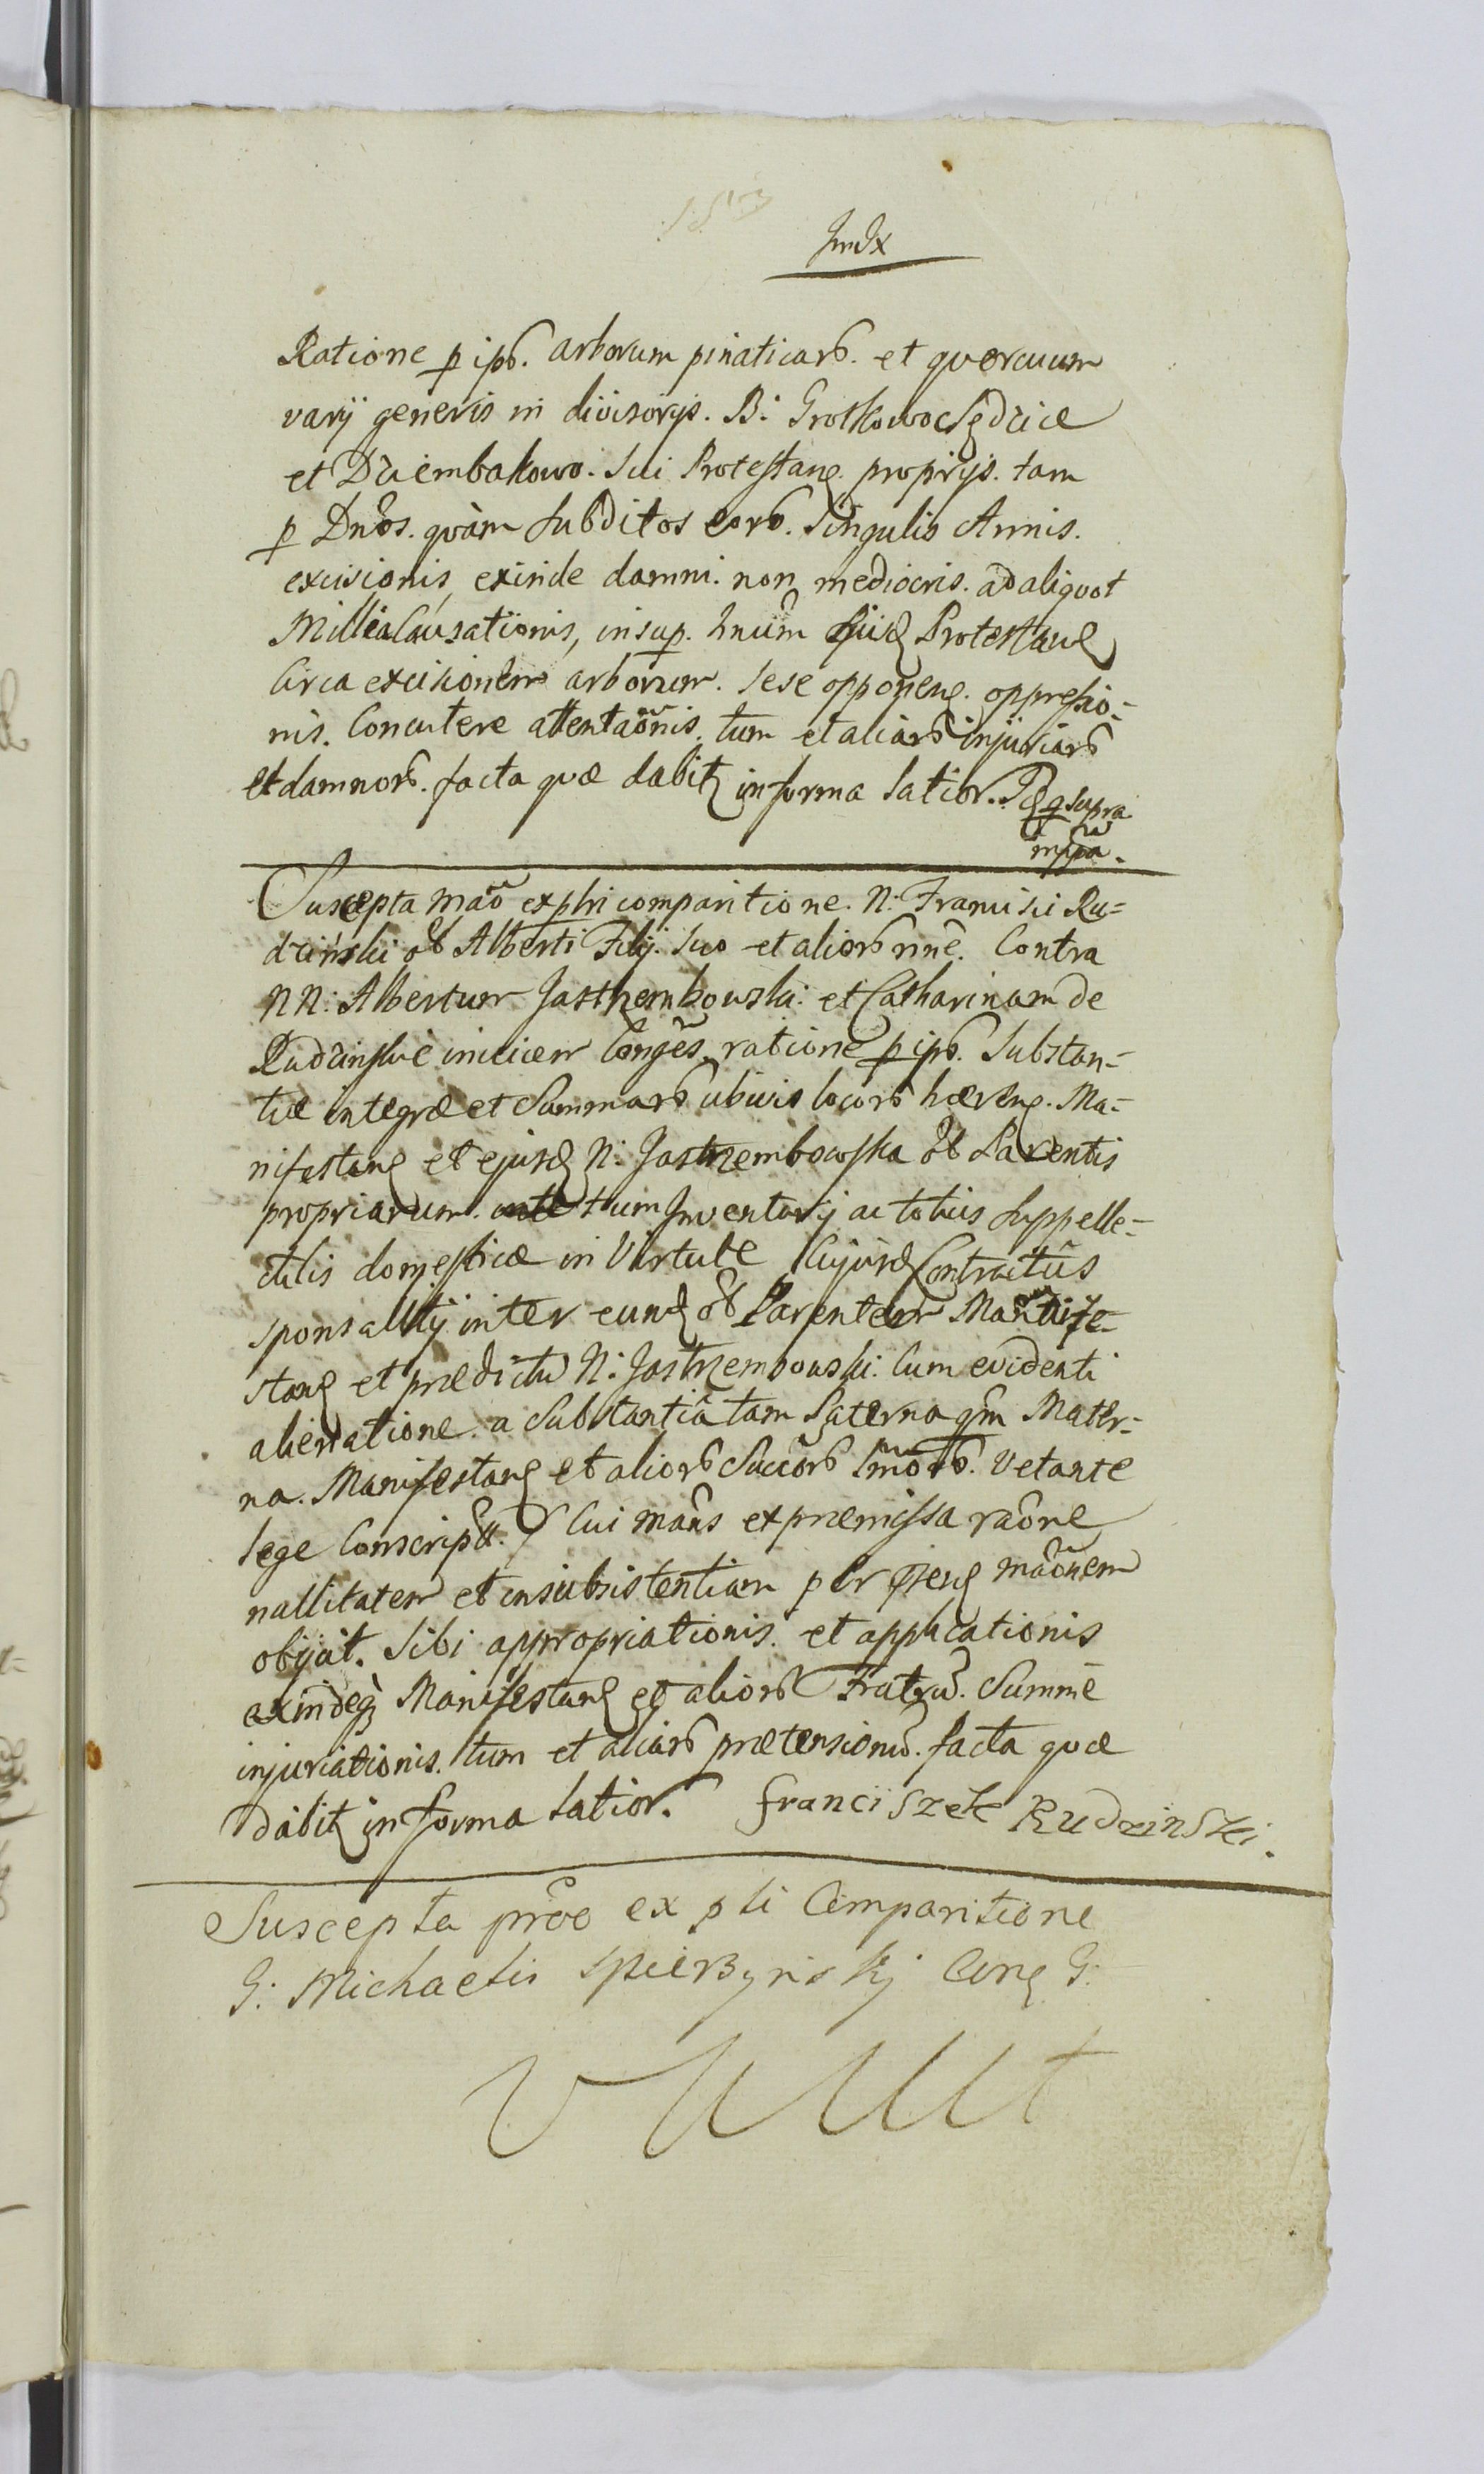 Ratione p ipõ. arborum pinaticarõ. et quercuum
varij generis in divisorijs. B: Grotkowo Sędzice
et Dziembakowo. sui Protestanę. proprijs. tam
p Dn̄os. quàm subditos eorõ. singulis Annis.
excisionis, exinde damni. non mediocris. ad aliquot
Millia Causationis, insup. Protestanę
Circa excisionem arborum. sese opponenę. oppressio=
nis. Concutere attentaōnis. tum et aliarõ injuriarõ
et damnorõ. facta quæ dabitʒ in forma latiori. Idę q supra
mppa.
Suscepta maō ex pltri comparitione. N: Francisci Ru=
dziński ol Alberti Filij. suo et aliorõ nn̄e. Contra
NN: Albertum Jastrzembowski. et Catharinam de
Rudzinskie invicem Conges. ratione p ipõ. Substan=
tiæ integræ et Summarõ ubivis locorõ hærenę. Ma=
nifestanę et ejusdę N: Jastrzembowska ol Parentis
propriarum. tum Inventarij ac totius suppelle=
ctilis domesticæ in Virtute Cujusdę Contractûs
sponsalitij inter eundę ol Parentem Manife=
stanę et prædictũ N: Jastrzembowski. cum evidenti
alienatione a Substantiâ tam Paterna qm̄ Mater=
na. Manifestanę et aliorõ Succorõ Vetante
lege Conscriptt. Cui man̄s ex præmissa raōne
nullitatem et insubsistentiam per pręnę maōnem
obijcit. Sibi appropriationis. et applicationis
exindeqʒ Manifestanę et aliorõ Fratrũ. Summè
injuriationis. tum et aliarõ prætensionũ. facta quæ
dabitʒ in forma latiori. Franciszek Rudzinski.
Suscepta pr̄oe ex plti Comparitione
G: Michaelis Spierzynskj Conę G: